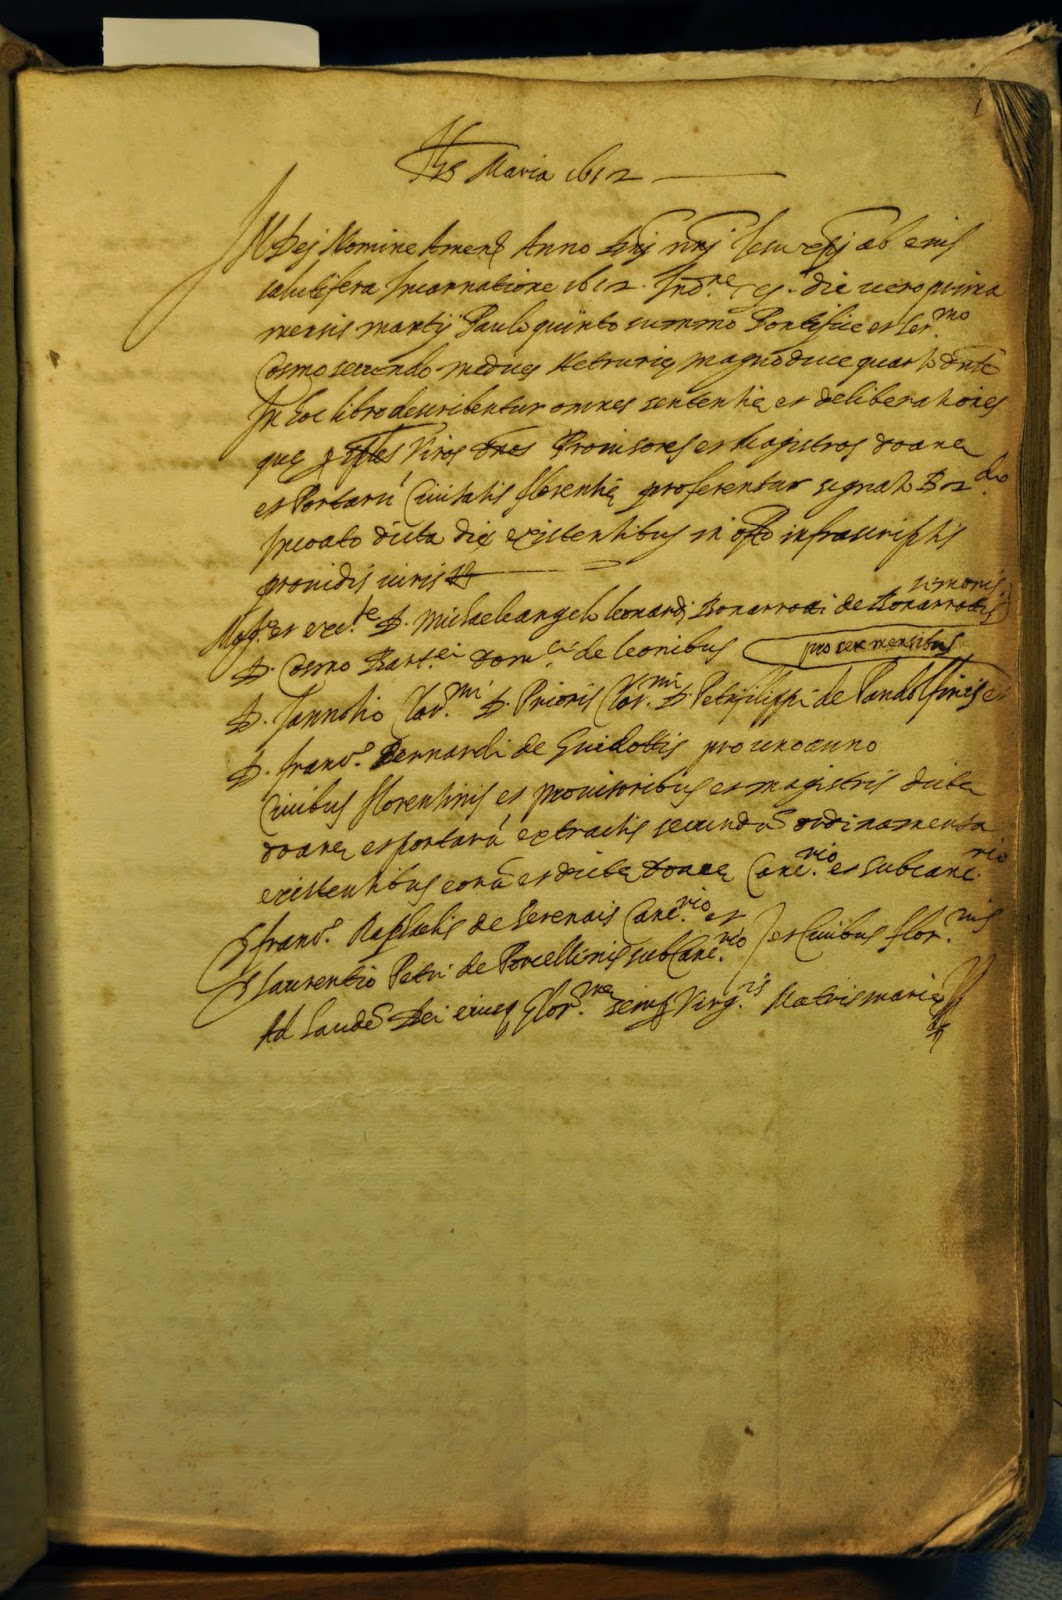 1
Yhs Maria 1612
In Dej Nomine Amen Anno Dnj nrj Jesu xpj ab eius
salutifera Incarnatione 1612 Ind.ne die vero prima
mensis martij Paulo quinto summo Pontifice et Ser.mo
Cosmo secundo medices Hetrurię magno duce quarto dnte
In hoc libro describentur omnes sententię et deliberationes
quę Viros dnos Provisores et Magistros doanę
et Portarū Civitatis florentię proferentur segnato B 2do
Incoato dicta die existentibus in offo infrascriptis
providis viris
simonis
Mag.r et ecc.te D. Michaelangelo leonardj Bonarroti de Bonarrotis
D. Cosmo Bart.ei dom.ci de leonibus pro sex mensibus
D. Iannotio Clar.mi D. Prioris Clar.mi D. Petrifilippi de Pandolfinis et
D. franc.o Bernardi de Guidottis pro uno anno
Civibus florentinis et provisoribus et magistris dictę
doanę et portarū extractis secundū ordinamenta
existentibus eorū et dictę doanę Canc.rio et Subcanc.rio
S franc.o Raphaelis de Serenais Canc.rio et
S laurentio Petri de Porcellinis subCanc.rio et Civibus flor.nis
Ad laudē Dei eiusq Glor.me semp Virg.is Matris marię